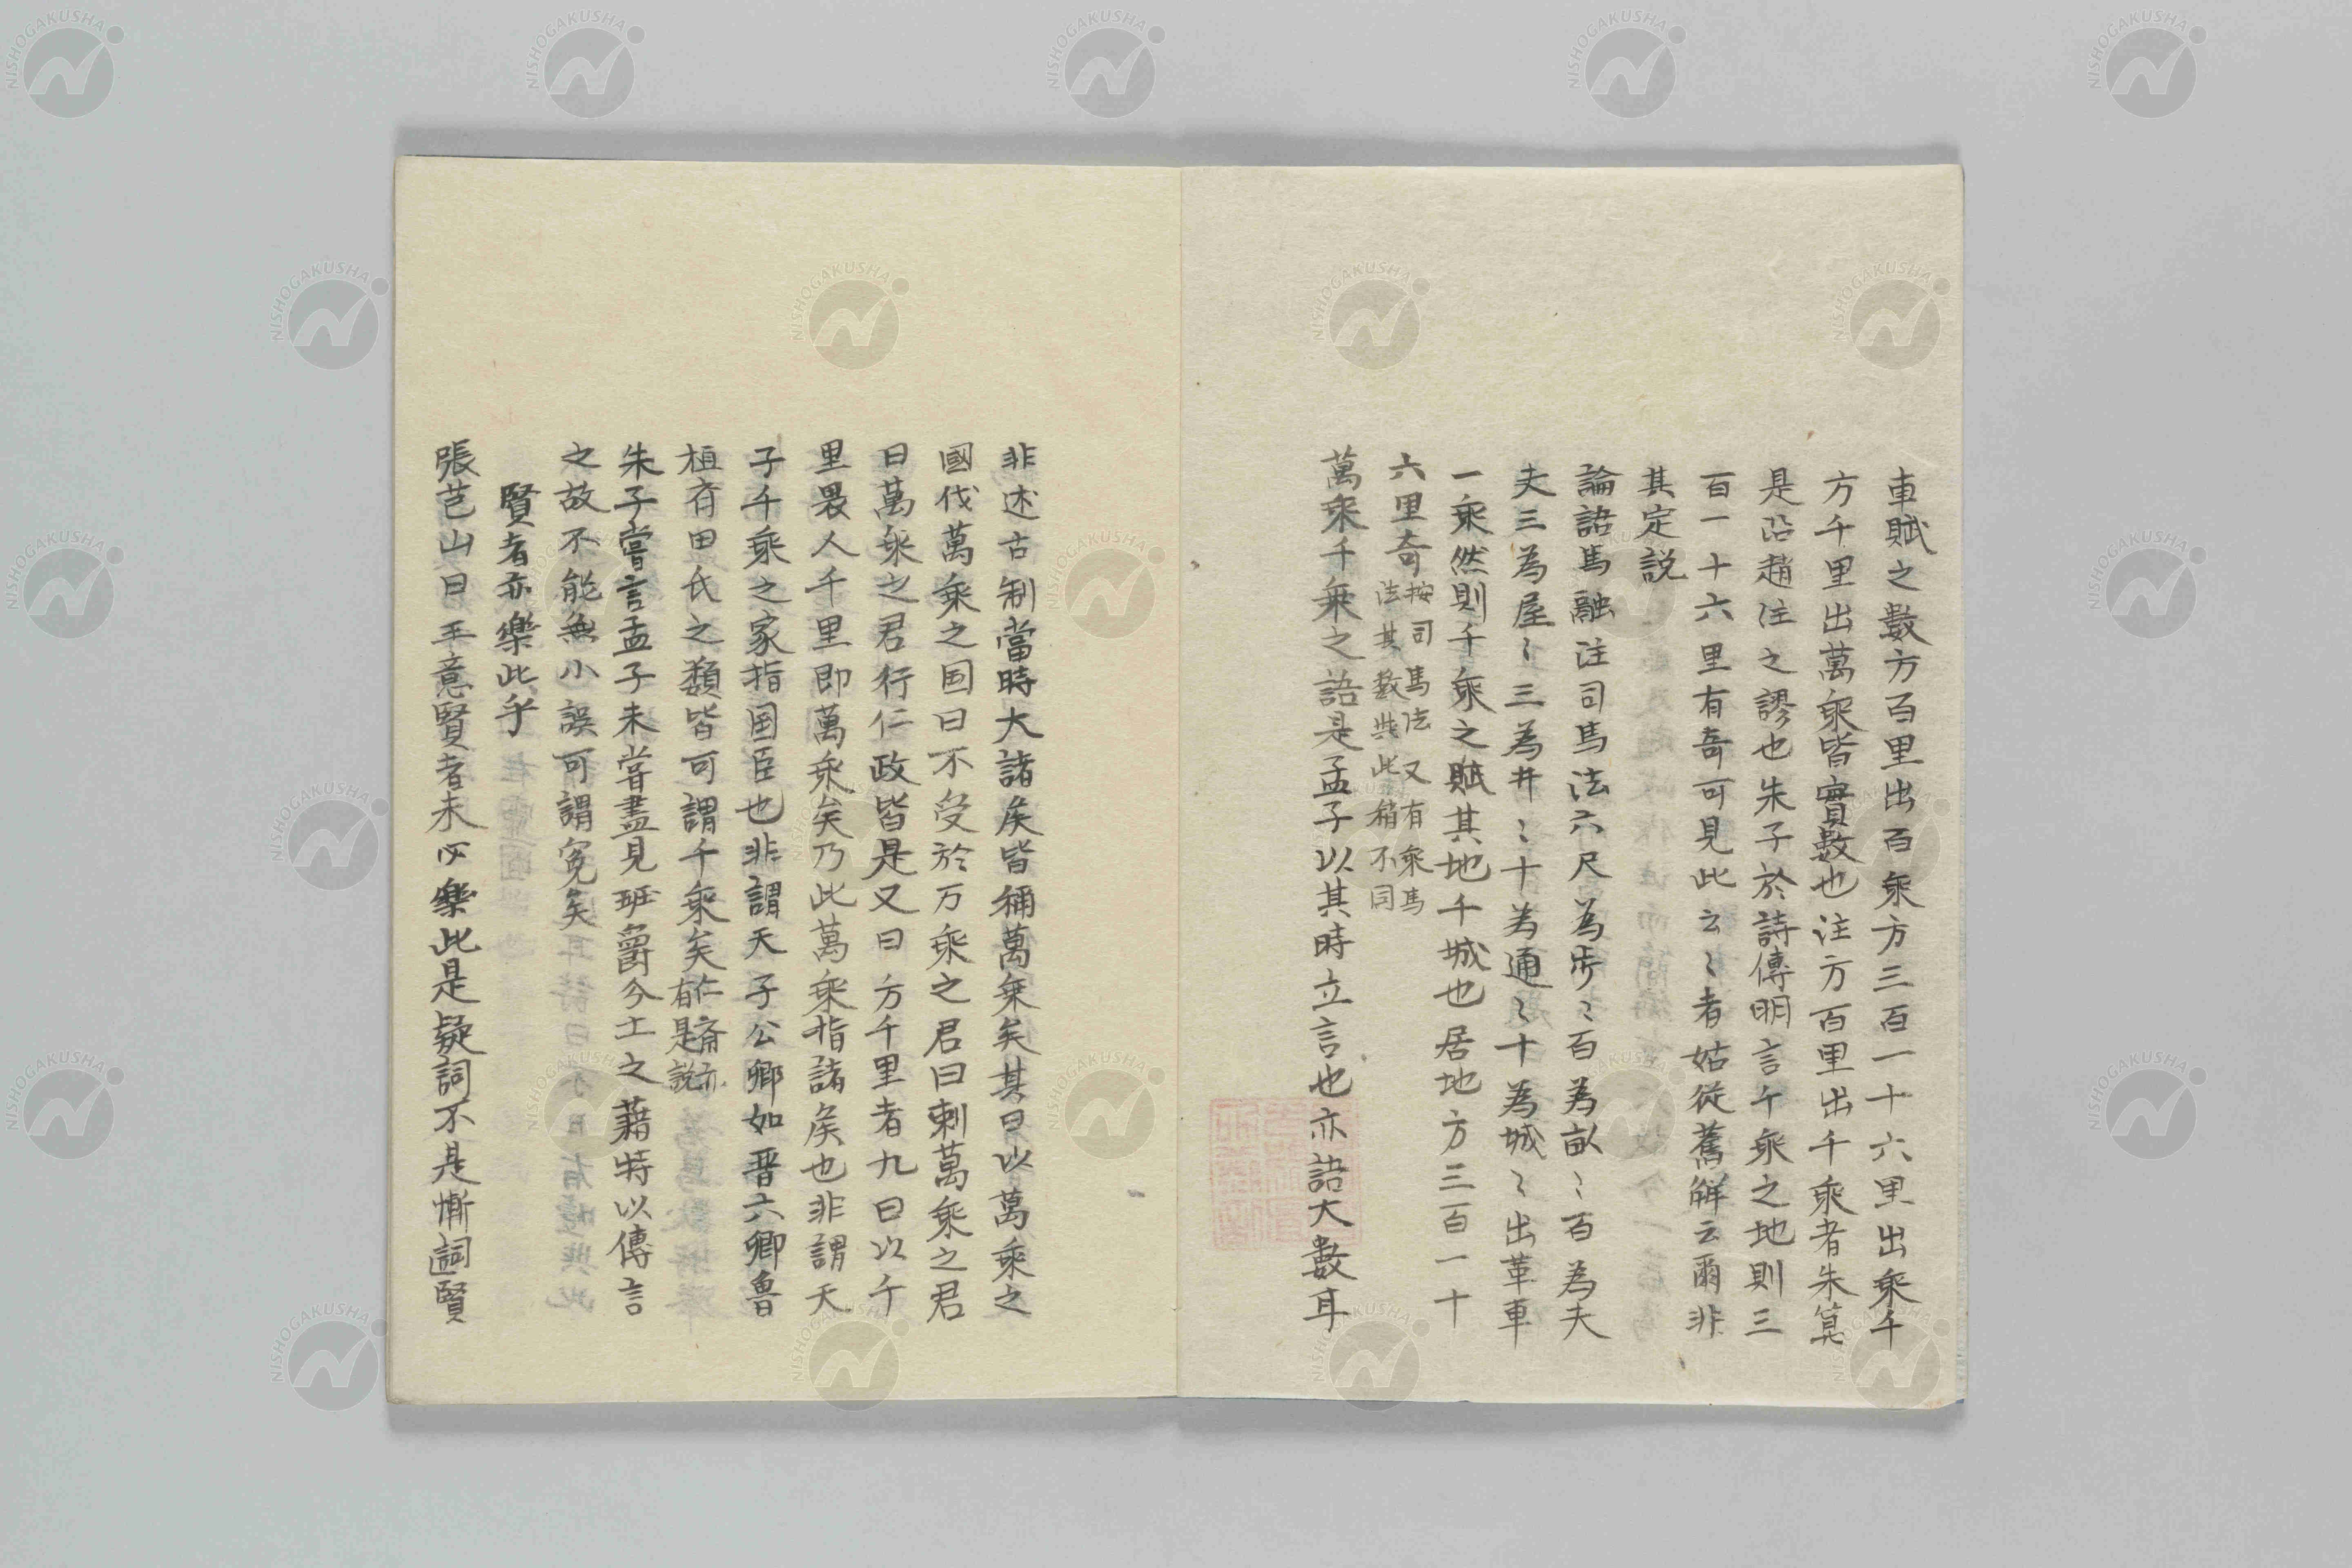 車賦之數方百里出百乘方三百一十六里出乘千
方千里出萬乘皆實數也注方百里出千乘者朱箕
是沿趙注之謬也朱子於詩傳明言千乘之地則三
百一十六里有奇可見此云〻者姑從舊解云爾非
其定説
論語馬融注司馬法六尺為步〻百為畝〻百為夫
夫三為屋〻三為井〻十為通〻十為城〻出革車
一乘然則千乘之賦其地千城也居地方三百一十
六里奇按司馬法又有乘馬法其數與此稍不同
萬乘千乘之語是孟子以其時立言也亦語大數耳
非述古制當時大諸侯皆稱萬乘矣其曰以萬乘之
國伐萬乘之国曰不受於万乘之君曰刺萬乘之君
曰萬乘之君行仁政皆是又曰方千里者九曰以千
里畏人千里即萬乘矣乃此萬乘指諸侯也非謂天
子千乘之家指国臣也非謂天子公卿如晋六卿魯
桓斉田氏之類皆可謂千乘矣仁斎亦有是說
朱子嘗言孟子未嘗盡見班爵分土之藉特以傳言
之故不能無小誤可謂寃矣
賢者亦樂此乎
張芑山曰王意賢者未必樂此是疑詞不是慚詞賢
NISHOGAKUSHA